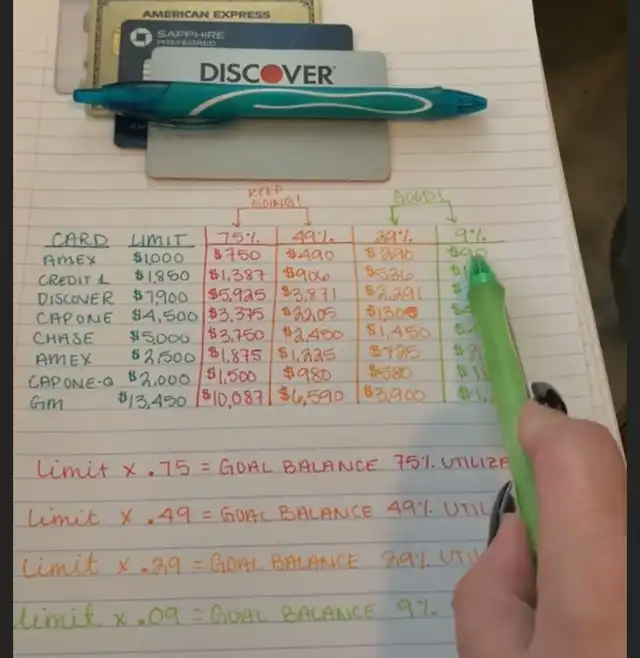 AMERICAN EXPRESS
SAPPHIRE
PREFERRED
DISCOVER
KEEP GOING! GOOD!
CARD LIMIT 75% 49% 29% 9%
AMEX $1,000 $750 $490 $290 $90
CREDIT 1 $1,850 $1,387 $906 $536
DISCOVER $7,900 $5,925 $3,871 $2,291
CAPONE $4,500 $3,375 $2205 $1305
CHASE $5,000 $3,750 $2,450 $1,450
AMEX $2,500 $1,875 $1,225 $725
CAPONE-Q $2,000 $1,500 $980 $580
GM $13,450 $10,087 $6,590 $3,900
Limit x .75 = GOAL BALANCE 75% UTILIZA
Limit x .49 = GOAL BALANCE 49% UTIL
Limit x .29 = GOAL BALANCE 29% UTIL
Limit x .09 = GOAL BALANCE 9%